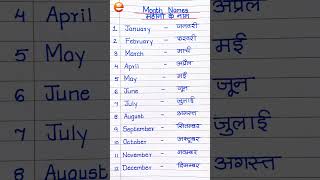 Month Names
महीनों के नाम
1 January - जनवरी
2 February - फरवरी
3 March - मार्च
4 April - अप्रैल
5 May - मई
6 June - जून
7 July - जुलाई
8 August - अगस्त
9 September - सितम्बर
10 October - अक्टूबर
11 November - नवम्बर
12 December - दिसम्बर
4 April
5 May
6 June
7 July
8 August
अप्रैल
मई
जून
जुलाई
अगस्त